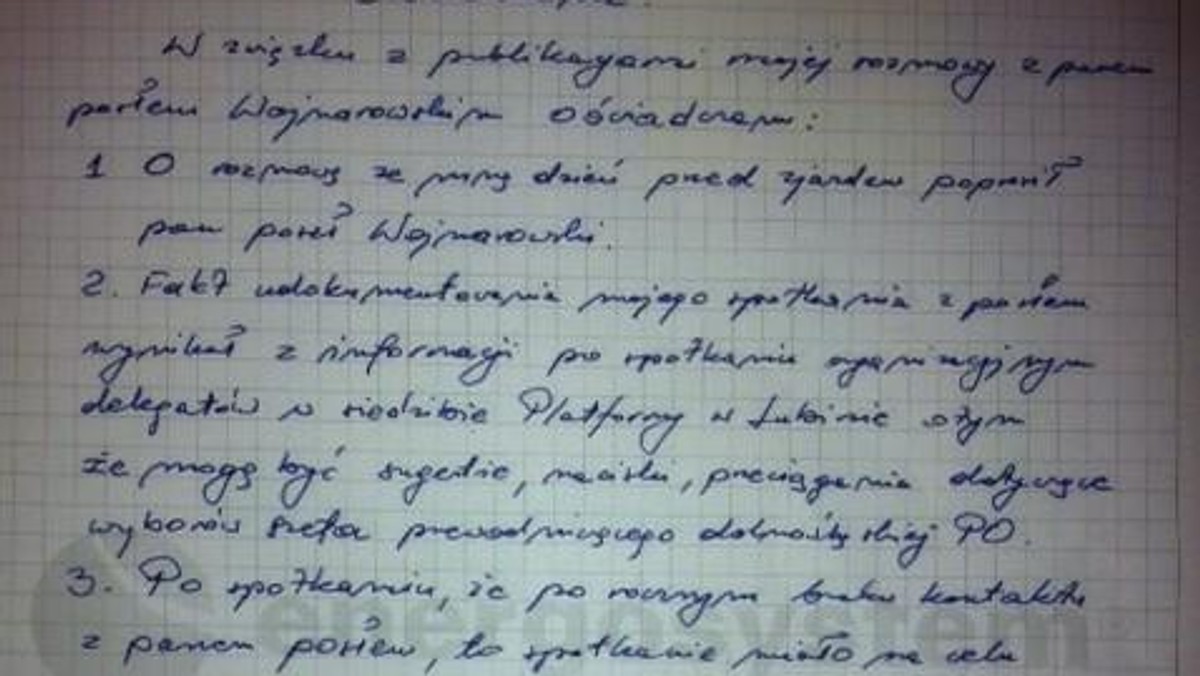 W związku z publikacjami mojej rozmowy z panem
posłem Wojnarowskim oświadczam:
1 O rozmowę ze mną dzień przed zjazdem poprosił
pan poseł Wojnarowski.
2. Fakt udokumentowania mojego spotkania z posłem
wynikał z informacji po spotkaniu organizacyjnym
delegatów w siedzibie Platformy w Lubinie o tym
że mogę być sugestie, naciski, przeciągania dotyczące
wyborów szefa przewodniczącego dolnośląskiej PO.
3. Po spotkaniu, że po rocznym braku kontaktu
z panem posłem, to spotkanie miało na celu
energosystem